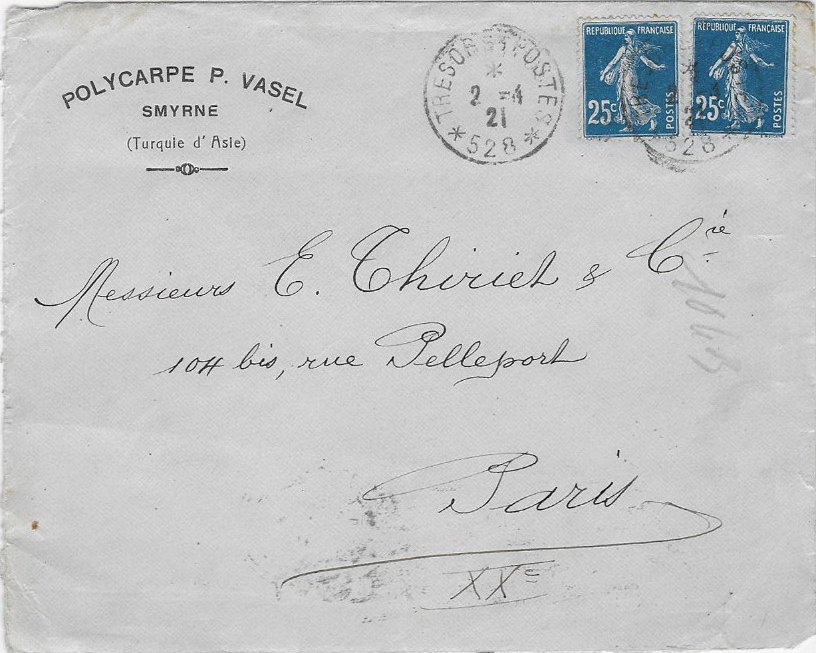 POLYCARPE P. VASEL
SMYRNE
(Turquie d'Asie)
TRESOR ET POSTES
*
2 -4
21
* 528 *
REPUBLIQUE FRANÇAISE
25c
POSTES
REPUBLIQUE FRANÇAISE
25c
POSTES
528
Messieurs E. Thiriet & Cie
104 bis, rue Pelleport
Paris
XXe